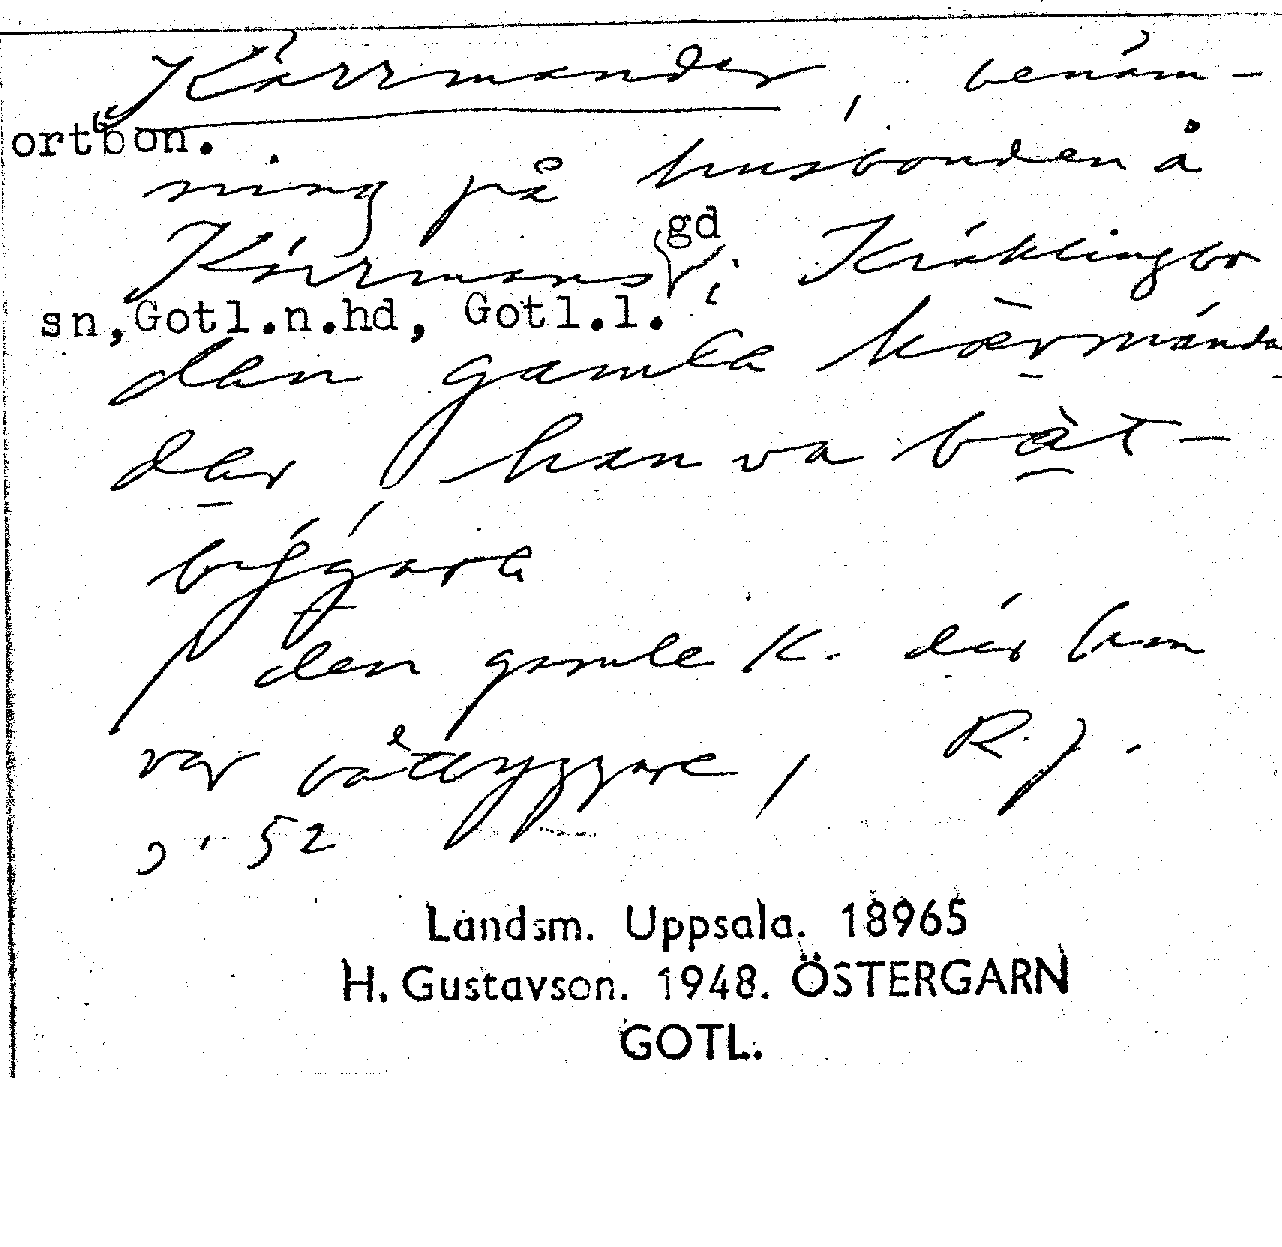 Kärrmander, benäm-
ortbon.
ning på husbonden å
Kärrmans gd i Kräklingbo
sn, Gotl.n.hd, Gotl.l.
den gamla kærmánda
dar han va båt-
býggare
den gamle K. där han
var båtbyggare, R. J.
52
Landsm. Uppsala. 18965
H. Gustavson. 1948. ÖSTERGARN
GOTL.